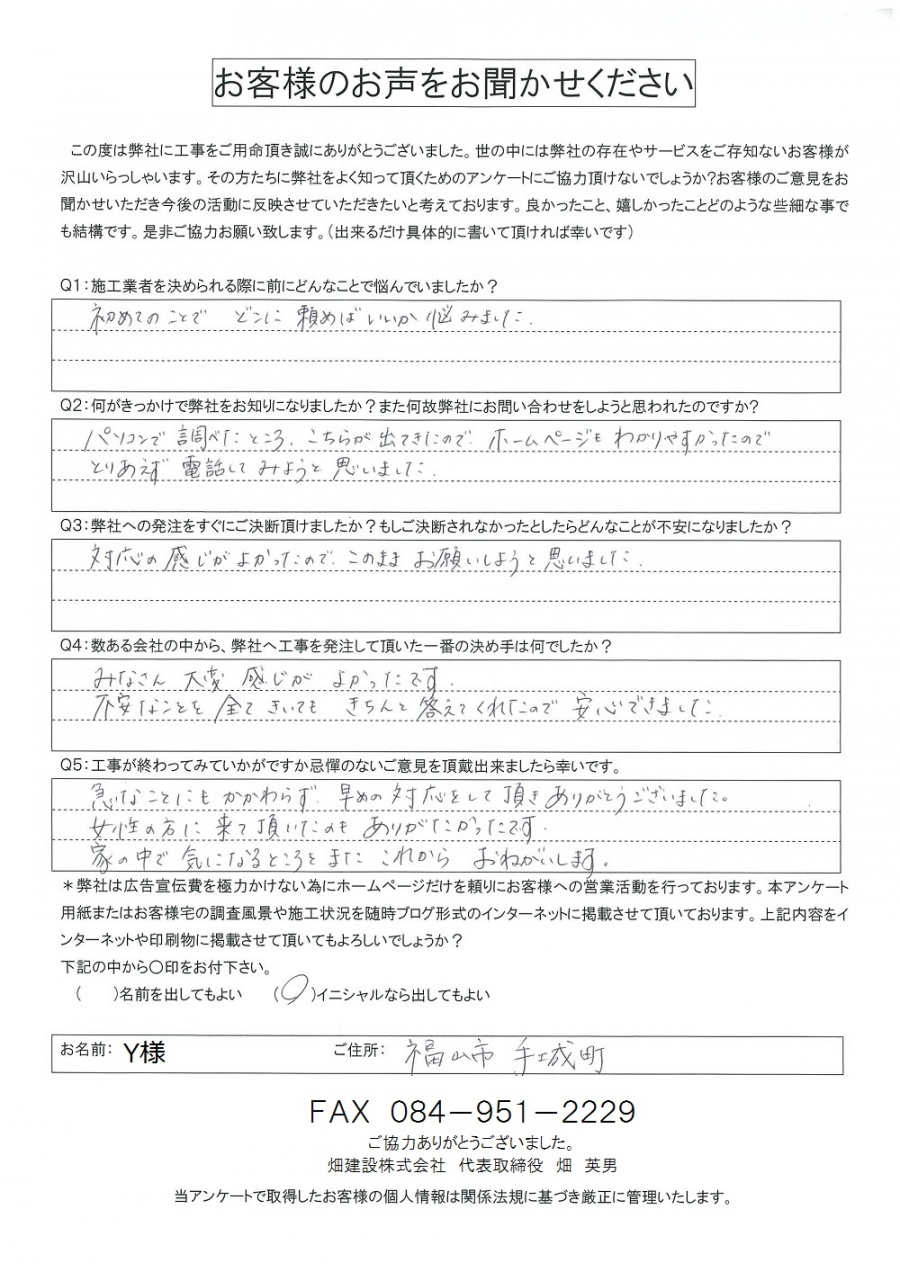 お客様のお声をお聞かせください
この度は弊社に工事をご用命頂き誠にありがとうございました。世の中には弊社の存在やサービスをご存知ないお客様が
沢山いらっしゃいます。その方たちに弊社をよく知って頂くためのアンケートにご協力頂けないでしょうか?お客様のご意見をお
聞かせいただき今後の活動に反映させていただきたいと考えております。良かったこと、嬉しかったことどのような些細な事で
も結構です。是非ご協力お願い致します。(出来るだけ具体的に書いて頂ければ幸いです)
Q1:施工業者を決められる際に前にどんなことで悩んでいましたか?
初めてのことで どこに 頼めばいいか 悩みました.
Q2:何がきっかけで弊社をお知りになりましたか?また何故弊社にお問い合わせをしようと思われたのですか?
パソコンで調べたところ、こちらが出てきたので、ホームページもわかりやすかったので
とりあえず 電話してみようと思いました.
Q3:弊社への発注をすぐにご決断頂けましたか?もしご決断されなかったとしたらどんなことが不安になりましたか?
対応の感じがよかったので、このまま お願いしようと思いました.
Q4:数ある会社の中から、弊社へ工事を発注して頂いた一番の決め手は何でしたか?
みなさん 大変 感じが よかったです.
不安なことを 全て きいても きちんと 答えてくれたので 安心できました.
Q5:工事が終わってみていかがですか忌憚のないご意見を頂戴出来ましたら幸いです。
急なことにもかかわらず、早めの対応をして頂きありがとうございました。
女性の方に来て頂いたのも ありがたかったです.
家の中で気になるところをまた これから おねがいします。
*弊社は広告宣伝費を極力かけない為にホームページだけを頼りにお客様への営業活動を行っております。本アンケート
用紙またはお客様宅の調査風景や施工状況を随時ブログ形式のインターネットに掲載させて頂いております。上記内容をイ
ンターネットや印刷物に掲載させて頂いてもよろしいでしょうか?
下記の中から○印をお付下さい。
( )名前を出してもよい (○)イニシャルなら出してもよい
お名前: Y様 ご住所: 福山市 手城町
FAX 084-951-2229
ご協力ありがとうございました。
畑建設株式会社 代表取締役 畑 英男
当アンケートで取得したお客様の個人情報は関係法規に基づき厳正に管理いたします。